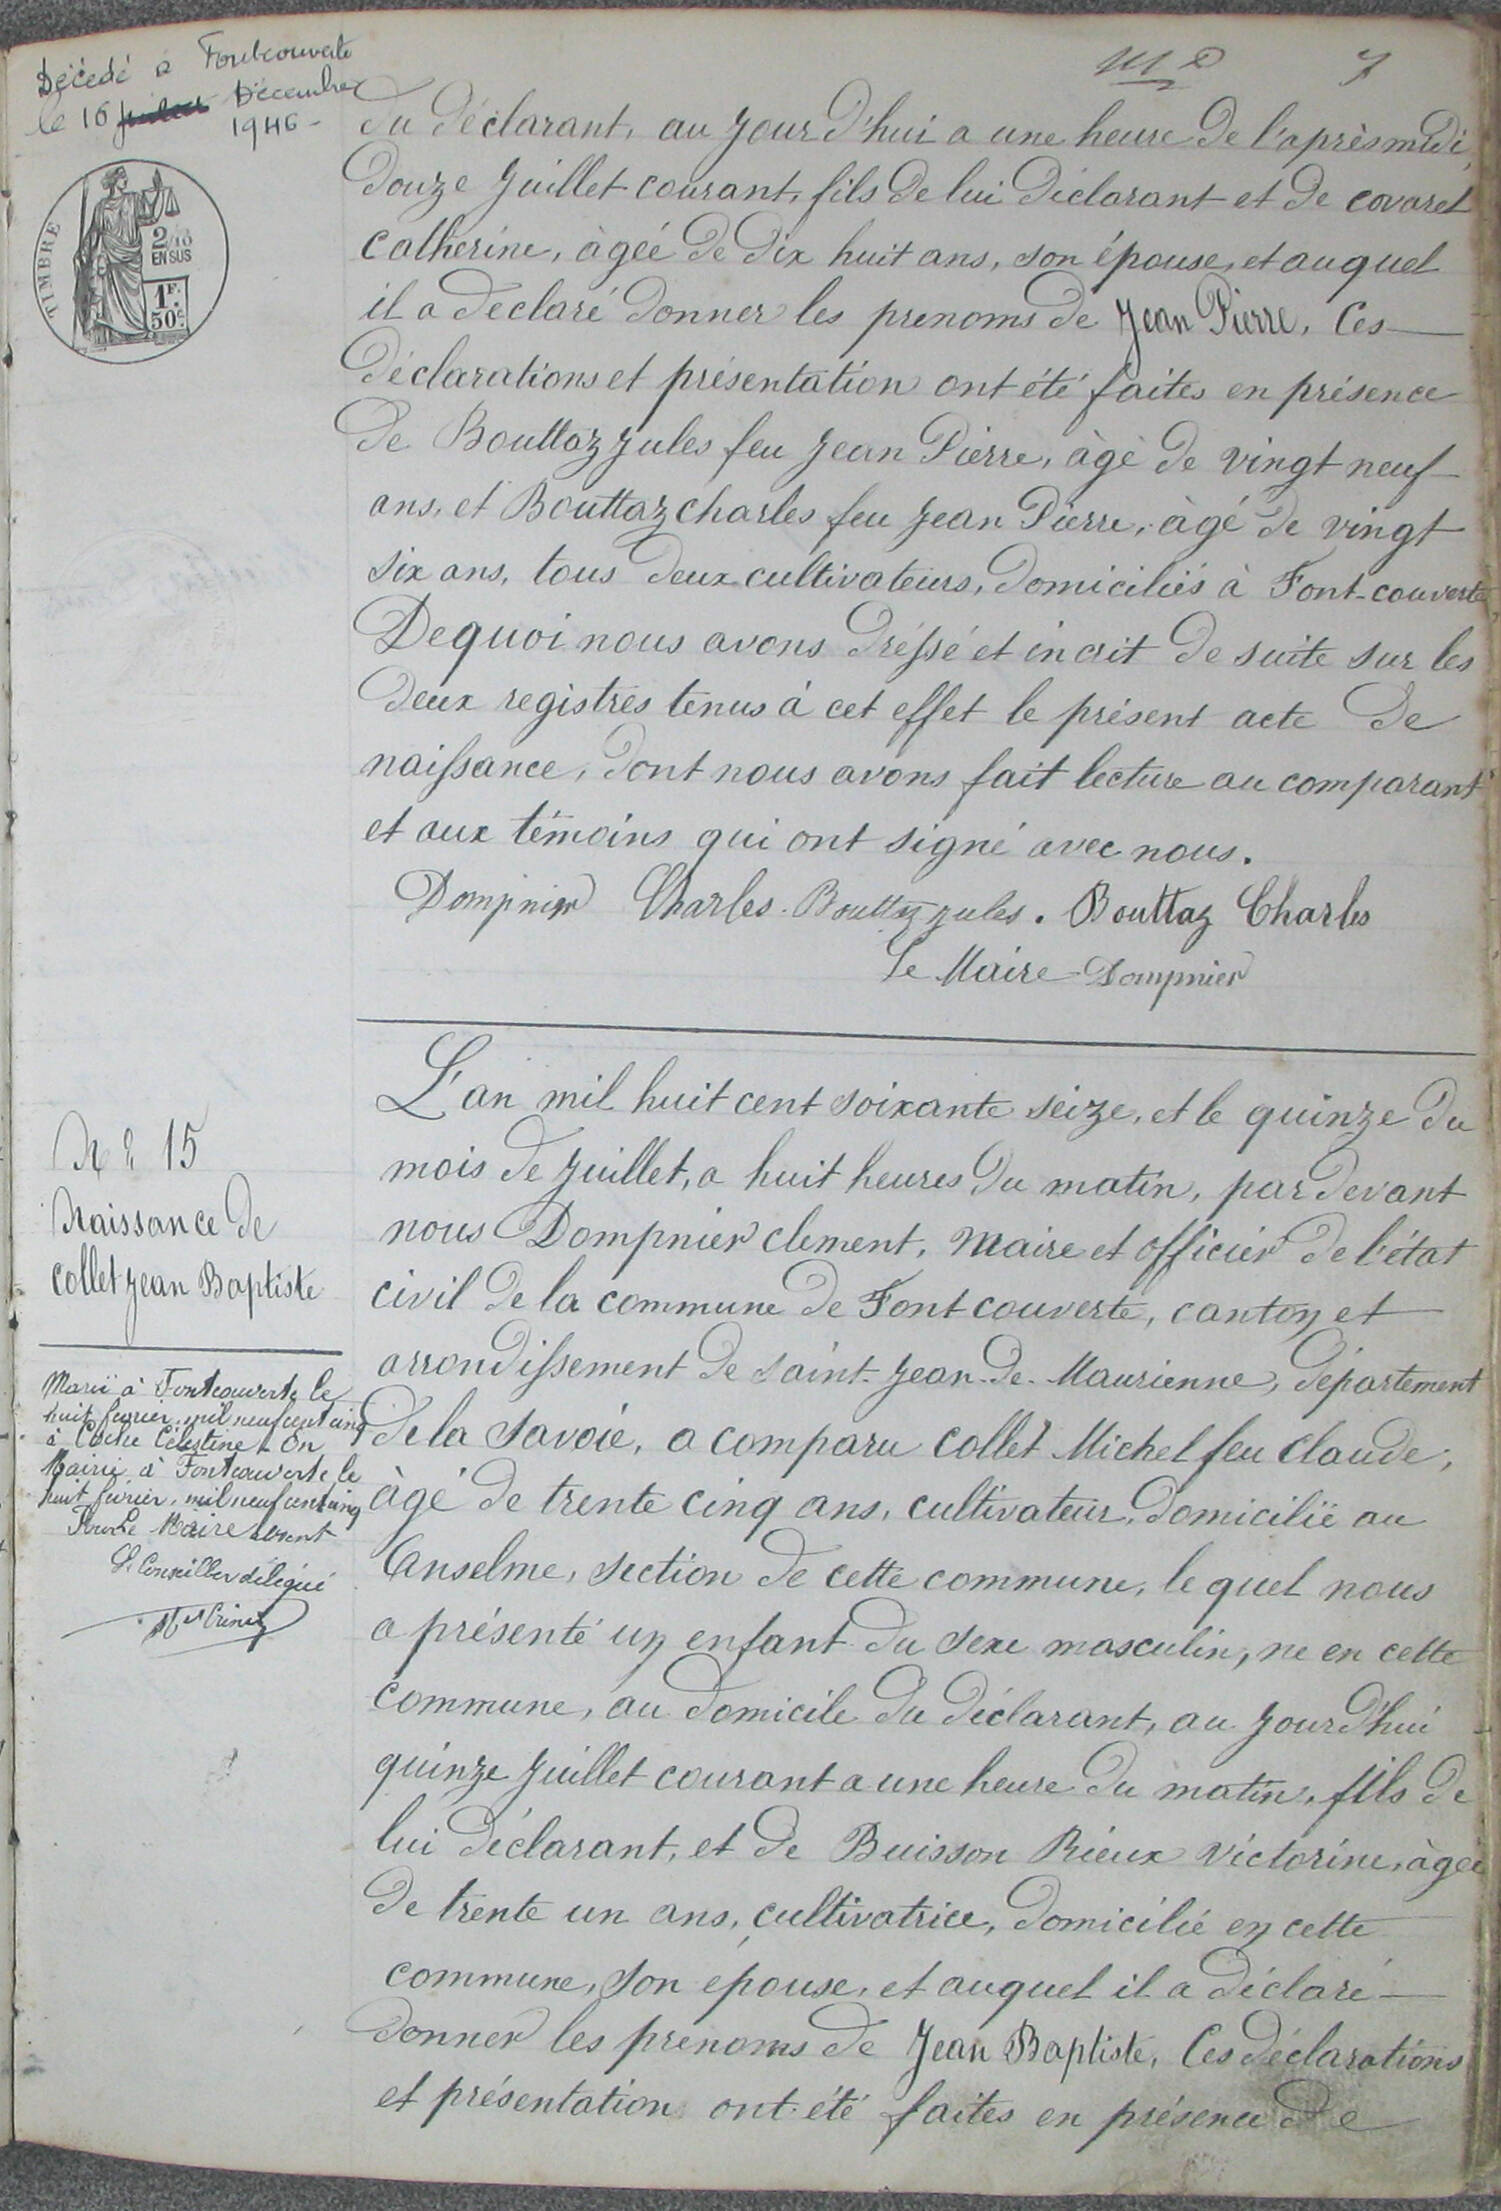 Décédé à Fontcouverte
le 16 juillet Décembre
1946 -
7
TIMBRE
2/10
EN SUS
1F.
50c.
du déclarant, au jour d'hui a une heure de l'après midi,
douze juillet courant, fils de lui déclarant et de covarel
catherine, àgée de dix huit ans, son épouse, et auquel
il a declaré donner les prenoms de Jean Pierre, Ces
déclarations et présentation ont été faites en présence
de Bouttaz jules feu Jean Pierre, àgé de vingt neuf
ans, et Bouttaz charles feu Jean Pierre, àgé de vingt
six ans, tous deux cultivateurs, domiciliés à Font-couverte,
De quoi nous avons dréssé et incrit de suite sur les
deux registres tenus à cet effet le présent acte de
naissance, dont nous avons fait lecture au comparant
et aux témoins qui ont signé avec nous.
Dompnier Charles. Bouttaz jules. Bouttaz Charles
Le Maire Dompnier
No 15
Naissance de
collet Jean Baptiste
Marié à Fontcouverte le
huit fevrier mil neuf cent cinq
à Célestine
Mairie à Fontcouverte le
huit fevrier, mil neuf cent cinq
Pour le Maire absent
Le Conseiller délégué
L'an mil huit cent soixante seize, et le quinze du
mois de juillet, a huit heures du matin, par devant
nous Dompnier clement, Maire et officier de l'état
civil de la commune de Font couverte, canton et
arrondissement de saint-Jean-de-Maurienne, département
de la savoie, a comparu collet Michel feu claude,
àgé de trente cinq ans, cultivateur, domicilié au
Anselme, section de cette commune, le quel nous
a présenté un enfant du sexe masculin, ne en cette
commune, au domicile du déclarant, au jour d'hui
quinze juillet courant a une heure du matin, fils de
lui déclarant, et de Buisson Rieux victorine, àgée
de trente un ans, cultivatrice, domicilié en cette
commune, son épouse, et auquel il a déclaré
donner les prenoms de Jean Baptiste, Ces déclarations
et présentation ont été faites en présence de